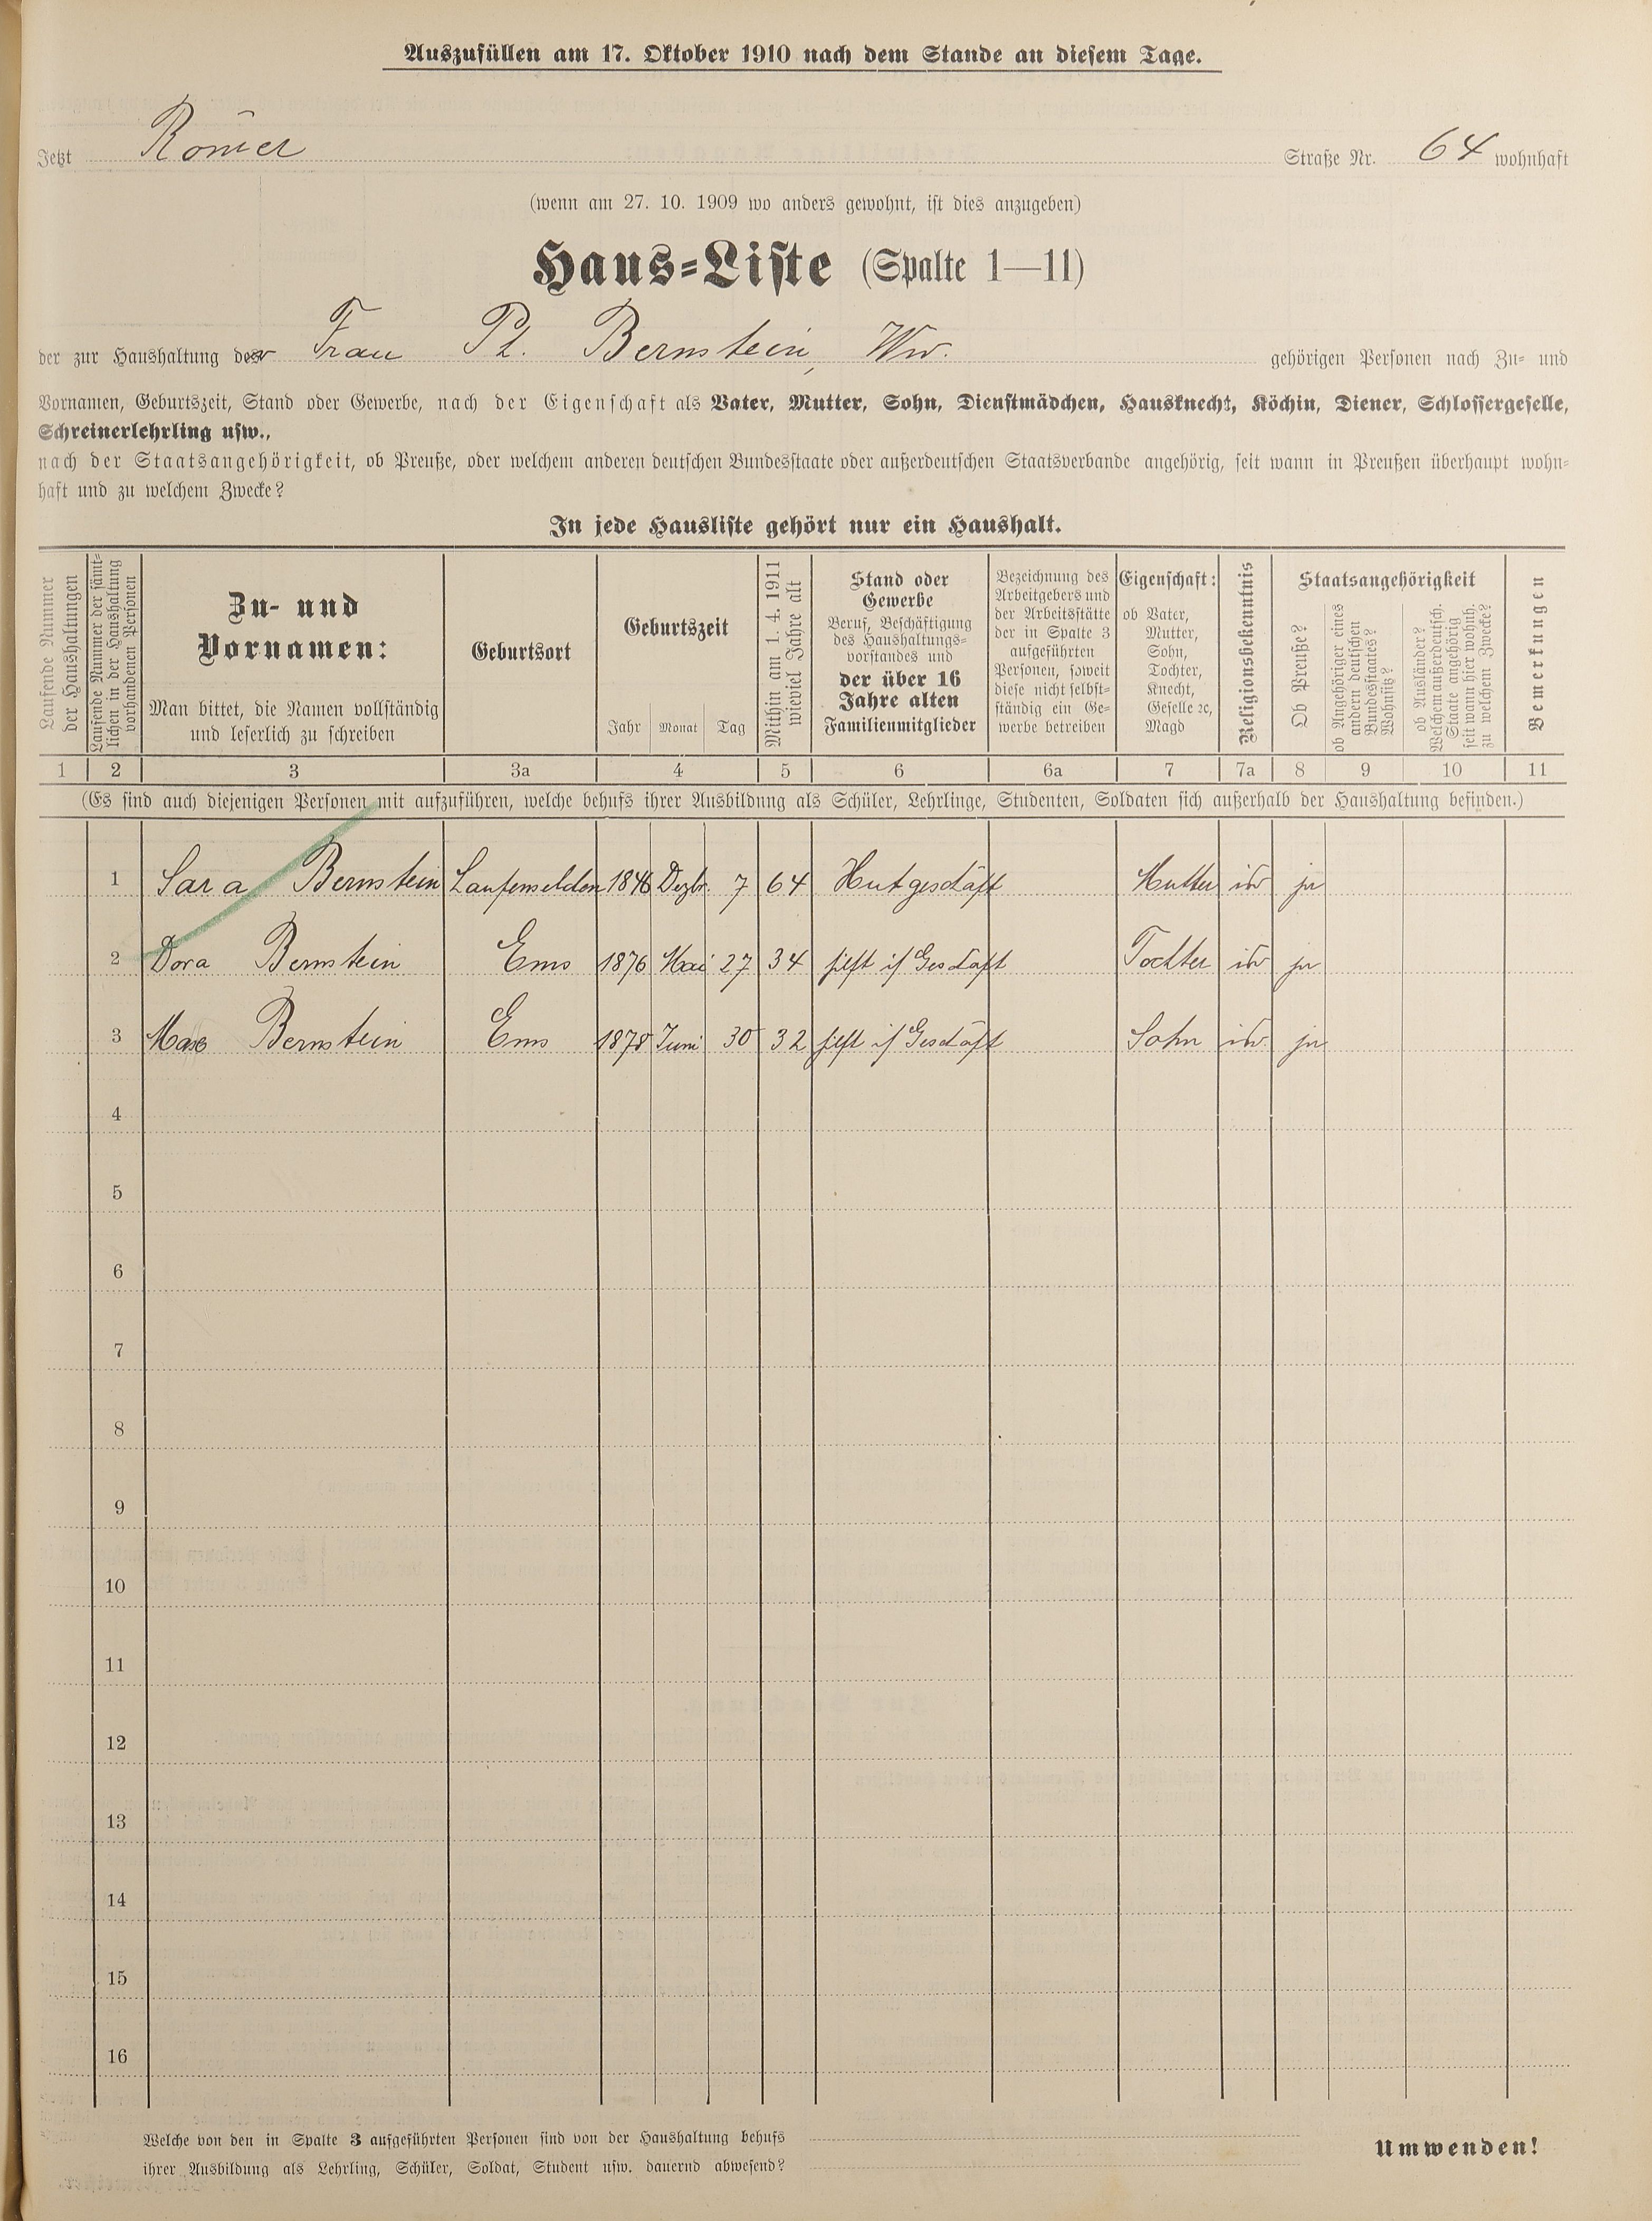 Auszufüllen am 17. Oktober 1910 nach dem Stande an diesem Tage.
Jetzt Römer Straße Nr. 64 wohnhaft
(wenn am 27. 10. 1909 wo anders gewohnt, ist dies anzugeben)
Haus=Liste (Spalte 1—11)
der zur Haushaltung der Frau Ph. Bernstein, Ww. gehörigen Personen nach Zu= und
Vornamen, Geburtszeit, Stand oder Gewerbe, nach der Eigenschaft als Vater, Mutter, Sohn, Dienstmädchen, Hausknecht, Köchin, Diener, Schlossergeselle,
Schreinerlehrling usw.,
nach der Staatsangehörigkeit, ob Preuße, oder welchem anderen deutschen Bundesstaate oder außerdeutschen Staatsverbande angehörig, seit wann in Preußen überhaupt wohn=
haft und zu welchem Zwecke?
In jede Hausliste gehört nur ein Haushalt.
Laufende Nummer
der Haushaltungen
Laufende Nummer der sämt=
lichen in der Haushaltung
vorhandenen Personen
Zu- und
Vornamen:
Man bittet, die Namen vollständig
und leserlich zu schreiben
Geburtsort
Geburtszeit
Jahr Monat Tag
Mithin am 1. 4. 1911
wieviel Jahre alt
Stand oder
Gewerbe
Beruf, Beschäftigung
des Haushaltungs=
vorstandes und
der über 16
Jahre alten
Familienmitglieder
Bezeichnung des
Arbeitgebers und
der Arbeitsstätte
der in Spalte 3
aufgeführten
Personen, soweit
diese nicht selbst=
ständig ein Ge=
werbe betreiben
Eigenschaft:
ob Vater,
Mutter,
Sohn,
Tochter,
Knecht,
Geselle ꝛc,
Magd
Religionsbekenntnis
Staatsangehörigkeit
Ob Preuße?
ob Angehöriger eines
andern deutschen
Bundesstaates?
Wohnsitz?
ob Ausländer?
Welchem außerdeutsch.
Staate angehörig
seit wann hier wohnh.
zu welchem Zwecke?
Bemerkungen
1 2 3 3a 4 5 6 6a 7 7a 8 9 10 11
(Es sind auch diejenigen Personen mit aufzuführen, welche behufs ihrer Ausbildung als Schüler, Lehrlinge, Studenten, Soldaten sich außerhalb der Haushaltung befinden.)
1 Sara Bernstein Laufenselden 1846 Dezbr. 7 64 Hutgeschäft Mutter isr ja
2 Dora Bernstein Ems 1876 Mai 27 34 hilft i/ Geschäft Tochter isr ja
3 Max Bernstein Ems 1878 Juni 30 32 hilft i/ Geschäft Sohn isr. ja
4
5
6
7
8
9
10
11
12
13
14
15
16
Welche von den in Spalte 3 aufgeführten Personen sind von der Haushaltung behufs
ihrer Ausbildung als Lehrling, Schüler, Soldat, Student usw. dauernd abwesend?
Umwenden!